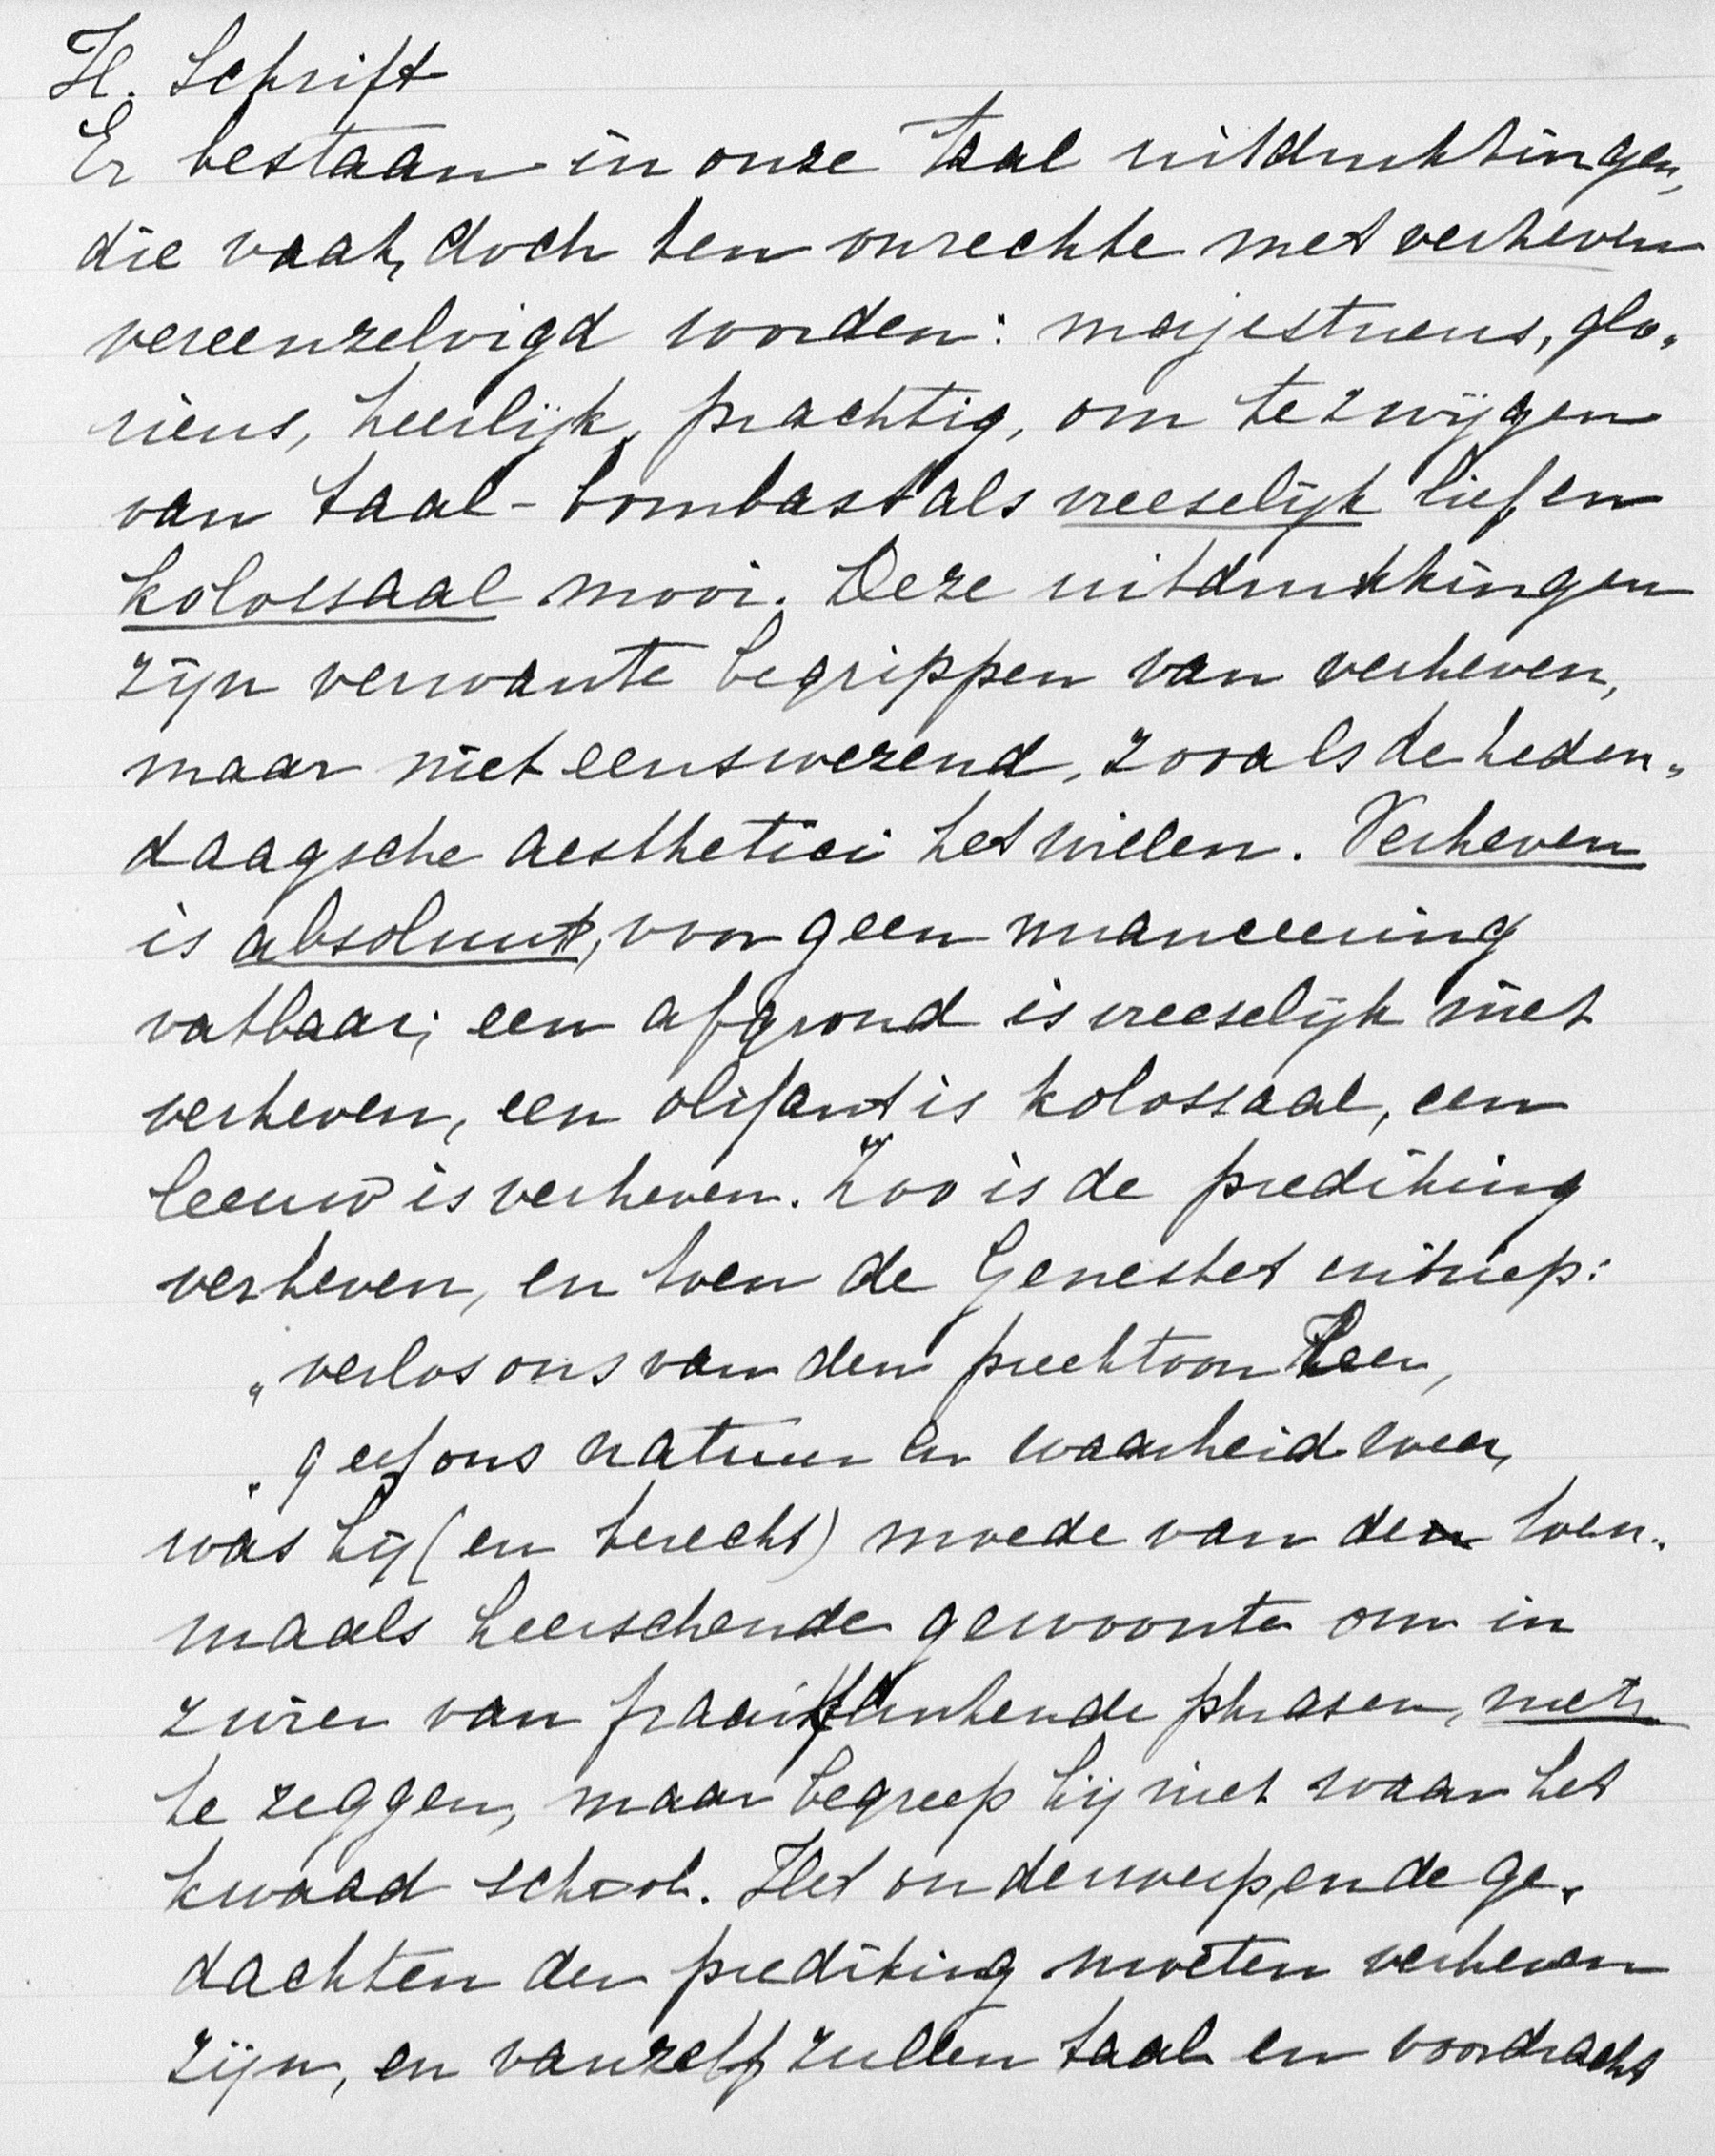 H. Schrift
Er bestaan in onze taal uitdrukkingen,
die vaak, doch ten onrechte met verheven
vereenzelvigd worden: majestueus, glo„
rieus, heerlijk, prachtig, om te zwijgen
van taal-bombast als vreeselijk lief en
kolossaal mooi. Deze uitdrukkingen
zijn verwante begrippen van verheven,
maar niet eenswezend, zooals de heden„
daagsche aesthetici het willen. Verheven
is absoluut, voor geen nuanceering
vatbaar; een afgrond is vreeselijk niet
verheven, een olifant is kolossaal, een
leeuw is verheven. Zoo is de prediking
verheven, en toen de Genestet uitriep:
„verlos ons van den preektoon Heer,
„geef ons natuur en waarheid weer,
was hij (en terecht) moede van de toen„
maals heerschende gewoonte om in
zwier van fraaiklinkende phrasen, niets
te zeggen, maar begreep hij niet waar het
kwaad school. Het onderwerp, en de ge„
dachten der prediking moeten verheven
zijn, en vanzelf zullen taal en voordracht